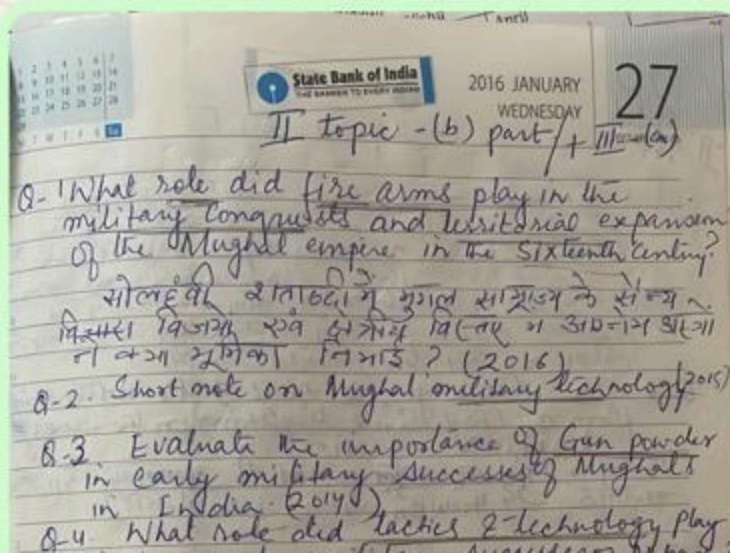 State Bank of India
THE BANKER TO EVERY INDIAN
2016 JANUARY
WEDNESDAY
27
II topic - (b) part / + III
Q-1 What role did fire arms play in the
military Conquests and territorial expansion
of the Mughal empire in the Sixteenth Century?
सोलहवीं शताब्दी में मुगल साम्राज्य के सैन्य
विजयो एवं क्षेत्रीय विस्तार में आग्नेय अस्त्रों
ने क्या भूमिका निभाई ? (2016)
Q-2. Short note on Mughal military technology (2015)
Q-3 Evaluate the importance of Gun powder
in early military successes of Mughals
in India. (2014)
Q-4. What role did tactics & technology play